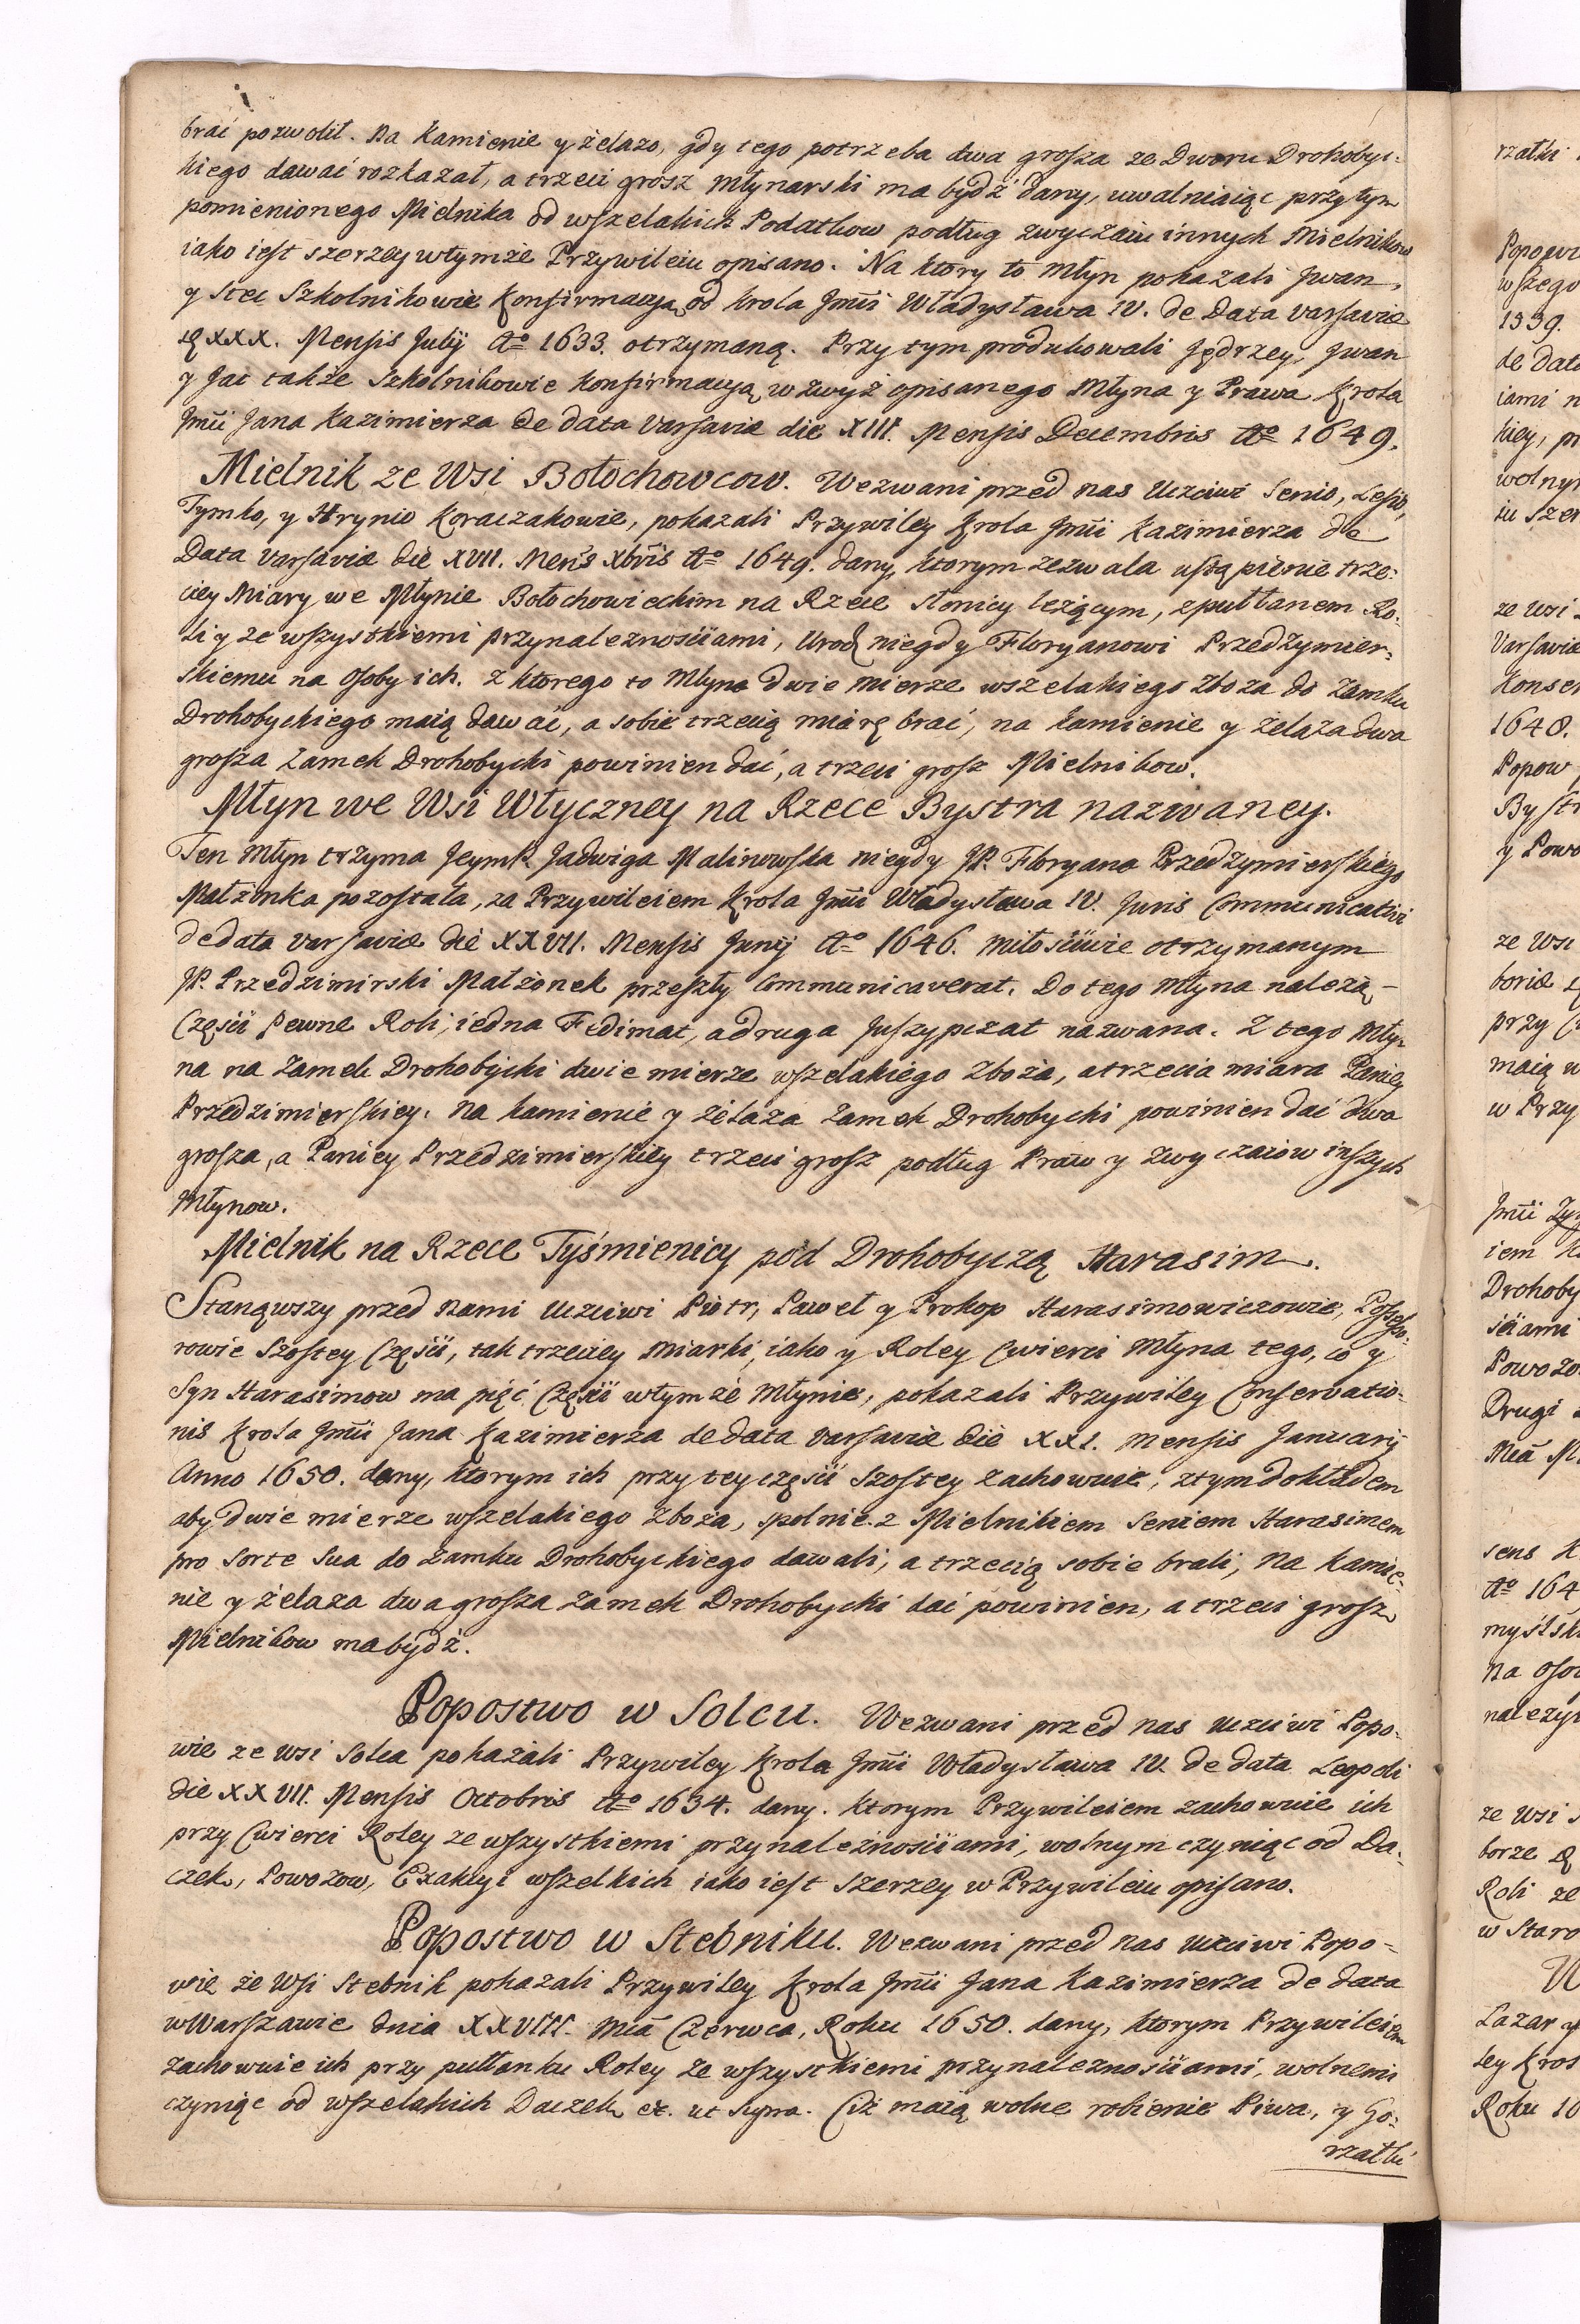 brać pozwolił. Na kamienie y żelazo, gdy tego potrzeba dwa grosza ze Dworu Drohobyc:
kiego dawać rozkazał, a trzeci grosz Młynarski ma bydź dany, uwalniaiąc przytym
pomienionego Mielnika od wszelakich Podatkow podług zwyczaiu innych Mielnikow
iako iest szerzey wtymże Przywileiu opisano. Na ktory to Młyn pokazali Jwan,
y Stec Szkolnikowie Konfirmacyą od krola Jmći Władysława IV. de Data Varsaviæ
XXX. Mensis Julij Aō 1633. otrzymaną. Przy tym produkowali Jędrzey, Jwan
y Jac także Szkolnikowie Konfirmacyą wzwyż opisanego Młyna y Prawa Krola
Jmći Jana Kazimierza de data Varsaviæ die XIII. Mensis Decembris Aō 1649.
Mielnik ze Wsi Bołochowcow. Wezwani przed nas Uczciwi Senio, Lesio,
Tymko, y Hrynio Koraczakowie, pokazali Przywiley Krola Jmći Kazimierza de
Data Varsaviæ die XVII. Mens Xbris Aō 1649. dany, ktorym zezwala ustąpienie trze:
ciey Miary we Młynie Bołochowieckim na Rzece Słonicy leżącym, zpułłanem Ro:
li y ze wszystkiemi przynaleznosciami, Urod niegdy Floryanowi Przedzymier:
skiemu na Osoby ich. Z ktorego to Młyna dwie mierze wszelakiego Zboza do Zamku
Drohobyckiego maią dawać, a sobie trzecią miarę brać, na kamienie y żelaza dwa
grosza Zamek Drohobycki powinien dać, a trzeci grosz Mielnikow.
Młyn we Wsi Włyczney na Rzece Bystra nazwaney.
Ten Młyn trzyma Jeymć Jadwiga Malinowska niegdy JP. Floryana Przedzymierskiego
Małżonka pozostała, za Przywileiem Krola Jmći Władysława IV. Juris Communicativi
de data Varsaviæ die XXVII. Mensis Junij Aō 1646. miłosciwie otrzymanym
JP. Przedzimirski Małżonek przeszły Communicaverat. Do tego Młyna należą
Części pewne Roli, iedna Fedimat, a druga Juszypczat nazwana. Z tego Mły:
na na Zamek Drohobycki dwie mierze wszelakiego Zboża, a trzecia miara Paniey
Przedzimierskiey. Na kamienie y żelaza Zamek Drohobycki powinien dać dwa
grosza, a Paniey Przedzimierskiey trzeci grosz podług Praw y Zwyczaiow inszych
Młynow.
Mielnik na Rzece Tyśmienicy pod Drohobyczą Harasim.
Stanąwszy przed Nami Uczciwi Piotr, Paweł y Prokop Harasimowiczowie, Possesso:
rowie Szostey Części, tak trzeciey Miarki, iako y Roley Cwierci Młyna tego, co y
Syn Harasimow ma pięć Części wtymże Młynie, pokazali Przywiley Conservatio:
nis Krola Jmći Jana Kazimierza de data Varsaviæ die XXI. Mensis Januarij
Anno 1650. dany, ktorym ich przy tey części Szostey zachowuie, z tym dokładem
aby dwie mierze wszelakiego Zboża, spolnie z Mielnikiem Seniem Harasimem
pro Sorte Sua do Zamku Drohobyckiego dawali, a trzecią sobie brali, Na kamie:
nie y żelaza dwa grosza Zamek Drohobycki dać powinien, a trzeci grosz
Mielnikow ma bydź.
Popostwo w Solcu. Wezwani przed nas uczciwi Popo:
wie ze wsi Solca pokazali Przywiley Krola Jmći Władysława IV. de data Leopoli
die XXVII. Mensis Octobris Aō 1634. dany. ktorym Przywileiem zachowuie ich
przy Cwierci Roley ze wszystkiemi przynależnosciami, wolnym czyniąc od Da:
czek, Powozow, Exakcyi wszelkich iako iest szerzey w Przywileiu opisano.
Popostwo w Stebniku. Wezwani przed nas uczciwi Popo:
wie ze Wsi Stebnik pokazali Przywiley Krola Jmći Jana Kazimierza de data
w Warszawie dnia XXVIII. Mcā Czerwca, Roku 1650. dany, ktorym Przywileiem
zachowuie ich przy pułłanku Roley ze wszystkiemi przynaleznosciami, wolnemi
czyniąc od wszelakich Daczek &c. ut supra. Ciż maią wolne robienie Piwa, y Go:
rzałki